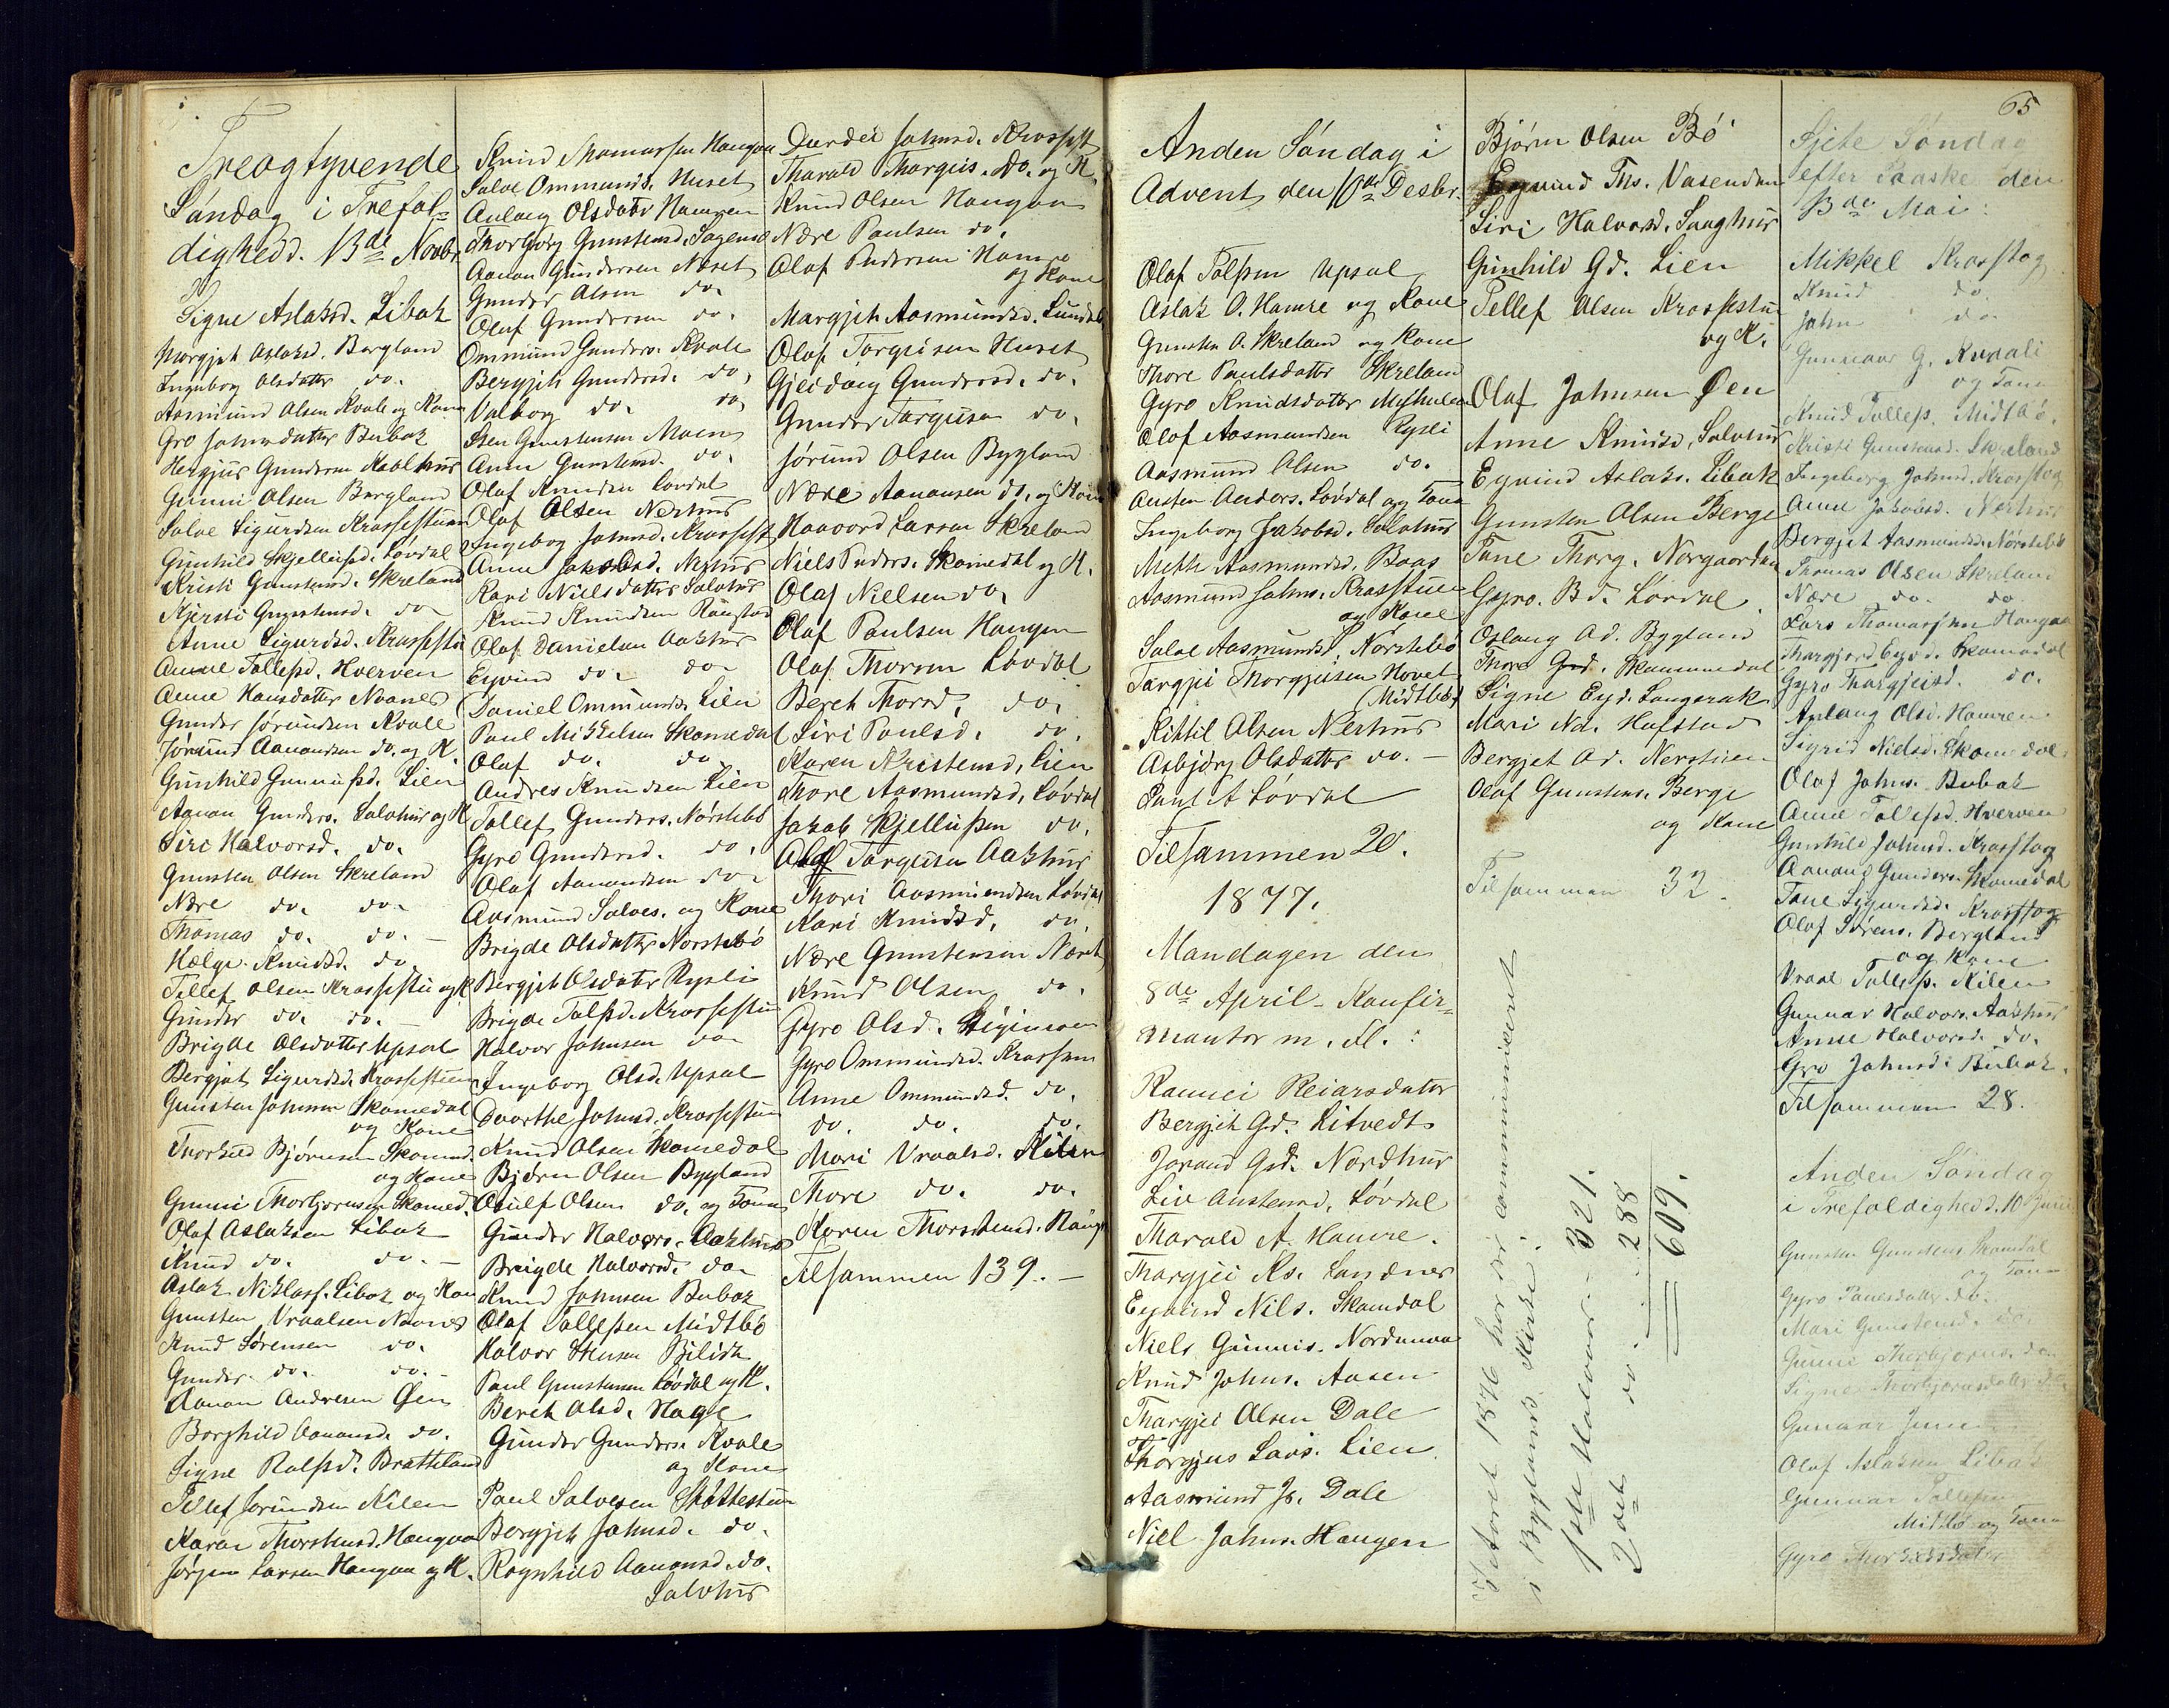 Treogtyvende
Søndag i Trefol-
dighedd. 13de Novbr
Signe Aslaksd. Libak
Margjet Aslaksd. Bergland
Ingeborg Olsdatter do.
Aasmund Olsen Kvale og Kone
Gro Johnsdatter Bubak
Hergjus Gundersen Kablhus
Gunni Olsen Bergland
Salve Sigurdsen Krossestuen
Gunhild Skjellufsd. Løvdal
Kristi Gunstensd. Skreland
Kjersti Gunstensd. do
Anne Sigurdsd. Krossestu
Anne Tollefsd. Hverven
Anne Hansdatter Noanes
Gunder Jørundsen Kvale
Jørund Aanondsen do. og K.
Gunhild Gunnufsd. Lien
Aanon Gunders. Salvhus og K
Siri Halvorsd. do.
Gunsten Olsen Skreland
Nære do. do.
Thomas do. do. –
Hælge Knudsd. do
Tellef Olsen Krossestu og K
Gunder do. do. –
Brigde Olsdatter Upsal
Bergjet Sigurdsd. Krossestuen
Gunsten Johnsen Skomedal
og Kone
Thorbjørn Bjørnsen Skomed.
og Kone
Gunni Thorbjørnsen Skomed.
Olaf Aslaksen Libak
Knud do. do. –
Aslak Niklass. Libak og Kon
Gunsten Vraalsen Noanes
Knud Sørensen do.
Gunder do. do. –
Aanon Andresen Øen
Borghild Aanonsd. do.
Signe Rolfsd. Bratteland
Tellef Jørundsen Kilen
Karen Thorstensd. Haugen
Jørgen Larsen Haugen og K.
Knud Thomassen Haugen
Salve Ommunds. Huset
Aulaug Olsdatr Hamren
Thorbjørg Gunstensd. Sagenes
Aanon Gundersen Næset
Gunder Olsen do.
Olaf Gundersen do.
Ommund Gunders. Kvale
Bergjet Gundersd. do,
Valborg do. do,
Sten Gunstensen Moen
Anne Gunstensd. do.
Olaf Knudsen Løvdal
Olaf Olsen Nerhus
Ingeborg Johnsd. Krossest
Anne Jakobsd. Nerhus
Kari Nielsdatter Salvhus
Knud Knudsen Raustad
Olaf Danielsen Aakhus
Eyvind do. do.
Daniel Ommunds. Lien
Paul Mikkelsen Skomedal
Olaf do. do.
Andres Knudsen Lien
Tollef Gunders. Nørstebø
Gyro Gundersd. do.
Olaf Aanondsen do.
Aasmund Salves. og Kone
Brigde Olsdatter Norstebø
Bergjet Olsdatter Rysli
Brigde Tolfsd. Krossestu
Halvor Johnsen do
Ingeborg Olsd. Upsal
Doorthe Johnsd. Krossestuen
Knud Olsen Skomedal
Bjørn Olsen Bygland
Osulf Olsen do. og Kone
Gunder Halvors. Aakhus
Brigde Halvorsd. do.
Knud Johnsen Bubak
Olaf Tollefsen Midtbø
Halvor Stensen
Paul Gunstensen Løvdal og K.
Beret Olsd. Hage
Gunder Gunders. Kvale
og Kone
Paul Salvesen Skøttestuen
Bergjet Johnsd. do.
Ragnhild Aanonsd. do.
Salvhus
Dardei Johnsd. Krossest
Tharald Thorgils. do. og K.
Knud Olsen Haugen
Nære Paulsen do.
Olaf Pedersen Hamre
og Kone
Margjit Aasmundsd. Lundal
Olaf Torgusen Huset
Gjeidøug Gundersd. do.
Gunder Torgusen do.
Jørund Olsen Bygland
Nære Aanonsen do. og Kone
Haavord Larsen Skreland
Niels Peders. Skomedal og K.
Olaf Nielsen do.
Olaf Paulsen Haugen
Olaf Thorsen Løvdal
Beret Thorsd. do.
Siri Paulsd. do.
Karen Kristensd. Lien
Thore Aasmundsd. Løvdal
Jakob Skjellufsen do.
Olaf Torgusen Aakhus
Thori Aasmundsen Løvdal
Kari Knudsd. do.
Nære Gunstensen Næset
Knud Olsen do.
Gyro Olsd.
Gyro Ommundsd.
Anne Ommundsd. do.
do. do. do.
Mari Vraalsd. Kilen
Thore do. do.
Karen Thorstensd. Haug
Tilsammen 139. –
Anden Søndag i
Advent den 10de Desbr.
Olaf Tolfsen Upsal
Aslak O. Hamre og Kone
Gunsten O. Skreland og Kone
Thore Paulsdatter Skreland
Gyro Knudsdatter
Olaf Aasmundsen Rysli
Aasmund Olsen do.
Austen Anders. Løvdal og Kone
Ingeborg Jakobsd. Salvhus
Mette Aasmundsd. Baas
Aasmund Johns. Krosstuen
og Kone
Salve Aasmunds. Norstebø
Targjei Thorgjusen Hovet
Midtbø
Kittil Olsen Nerhus
Asbjørg Olsdatter do. –
Paul A Løvdal
Tilsammen 20.
1877.
Mandagen den
8de April – Konfir-
manter m. fl. :
Rannei Reiarsdatter
Bergjit Gd. Litvedt
Jorand Gsd. Nordhus
Liv Austensd. Løvdal
Tharald A. Hamre.
Thorgjei Ks. Landnes
Eyvind Nils. Skomdal
Niels Gunnis. Nordenaa
Knud Johns. Aasen
Thorgjei Olsen Dale
Thorgjus Lavs. Lien
Aasmund Js. Dale
Niel Johns. Haugen
Bjørn Olsen Bø
Eyvind Ths. Vasenden
Siri Halvorsd. Sanghus
Gunhild Gd. Lien
Tellef Olsen Krossestu
og K.
Olaf Johnsen Øen
Anne Knudsd. Salvhus
Eyvind Aslaks. Libak
Gunsten Olsen Berge
Tone Thorg. Norgaarden
Gyro. Bd. Løvdal
Oslaug Ad. Bygland
Thore Gsd. Skommedal
Signe Eyd. Langerak
Mari Nd. Hafstad
Bergjet Ad. Nerstuen
Olaf Gunstens. Berge
og Kone
Tilsammen 32.
I Aaret 1876 har der communiceret
i Byglands Kirke:
1ste Halvaar – 321.
2det do. – 288
609.
65
Sjete Søndag
efter Paaske den
13de Mai :
Mikkel Krosstog
Knud do.
John do.
Gunnar G. Kvaali
og Kone
Knud Tollefs. Midtbø
Kristi Gunstensd. Skreland
Ingeborg Johnsd. Krosstog
Anne Jakobsd. Nerhus
Bergjet Aasmundsd. Nørstebø
Thomas Olsen Skreland
Nære do. do
Lars Thomassen Haugen
Thorgjerd Eyvd. Skomedal
Gyro Thorgjeisd. do.
Aulaug Olsd. Hamren
Sigrid Nielsd. Skomedal
Olaf Johns. Bubak
Anne Tollefsd. Hverven
Gunhild Johnsd. Krosstog
Aanond Gunders. Skomedal
Tone Sigurdsd. Krosstog
Olaf Sørens. Bergland
og Kone
Vraal Tollefs. Kilen
Gunnar Halvors. Aakhus
Anne Halvorsd. do.
Gro Johnsd. Bubak.
Tilsammen 28.
Anden Søndag
i Trefoldighedd. 10 Juni
Gunsten Gunstens. Skomdal
og Kone
Gyro Paulsdatter do.
Mari Gunstensd. do.
Gunni Thorbjørns. do
Signe Thorbjørnsdatter do
Gunnar
Olaf Aslaksen Libak
Gunnar Tollefsen
Midtbø og Kone
Gyro